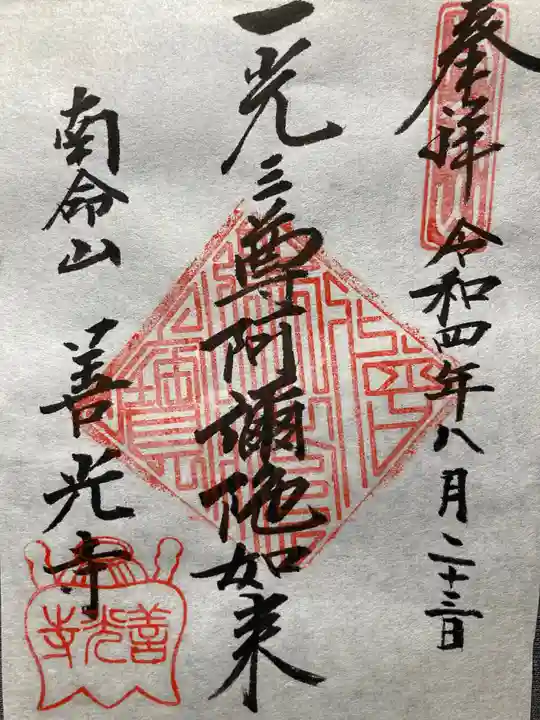 奉拝 令和四年八月二十三日
一光三尊阿彌陀如来
南命山 善光寺
善光寺